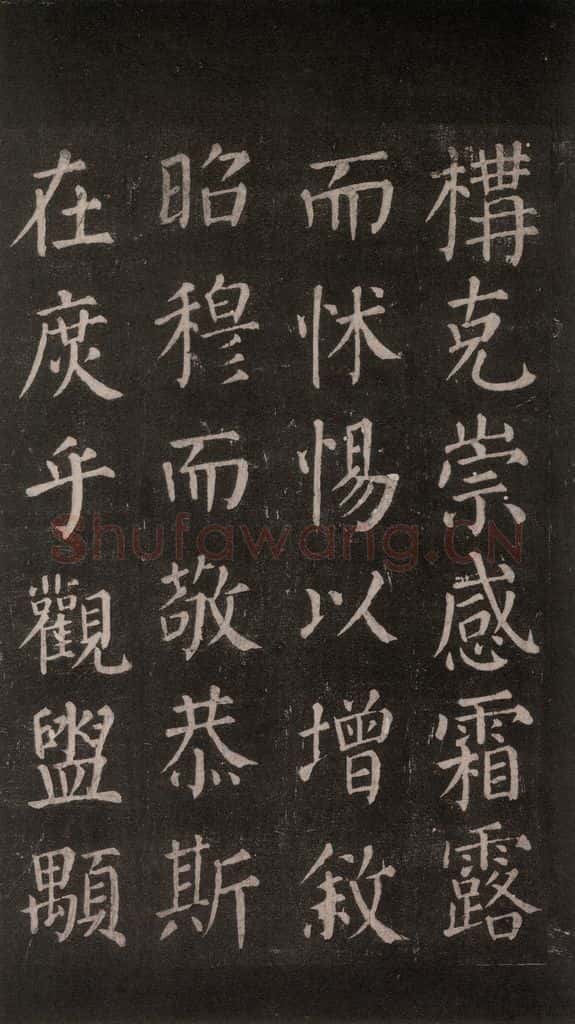 構克崇感霜露
而怵惕以增敘
昭穆而敬恭斯
在庶乎觀盥顒
Shufawang.CN